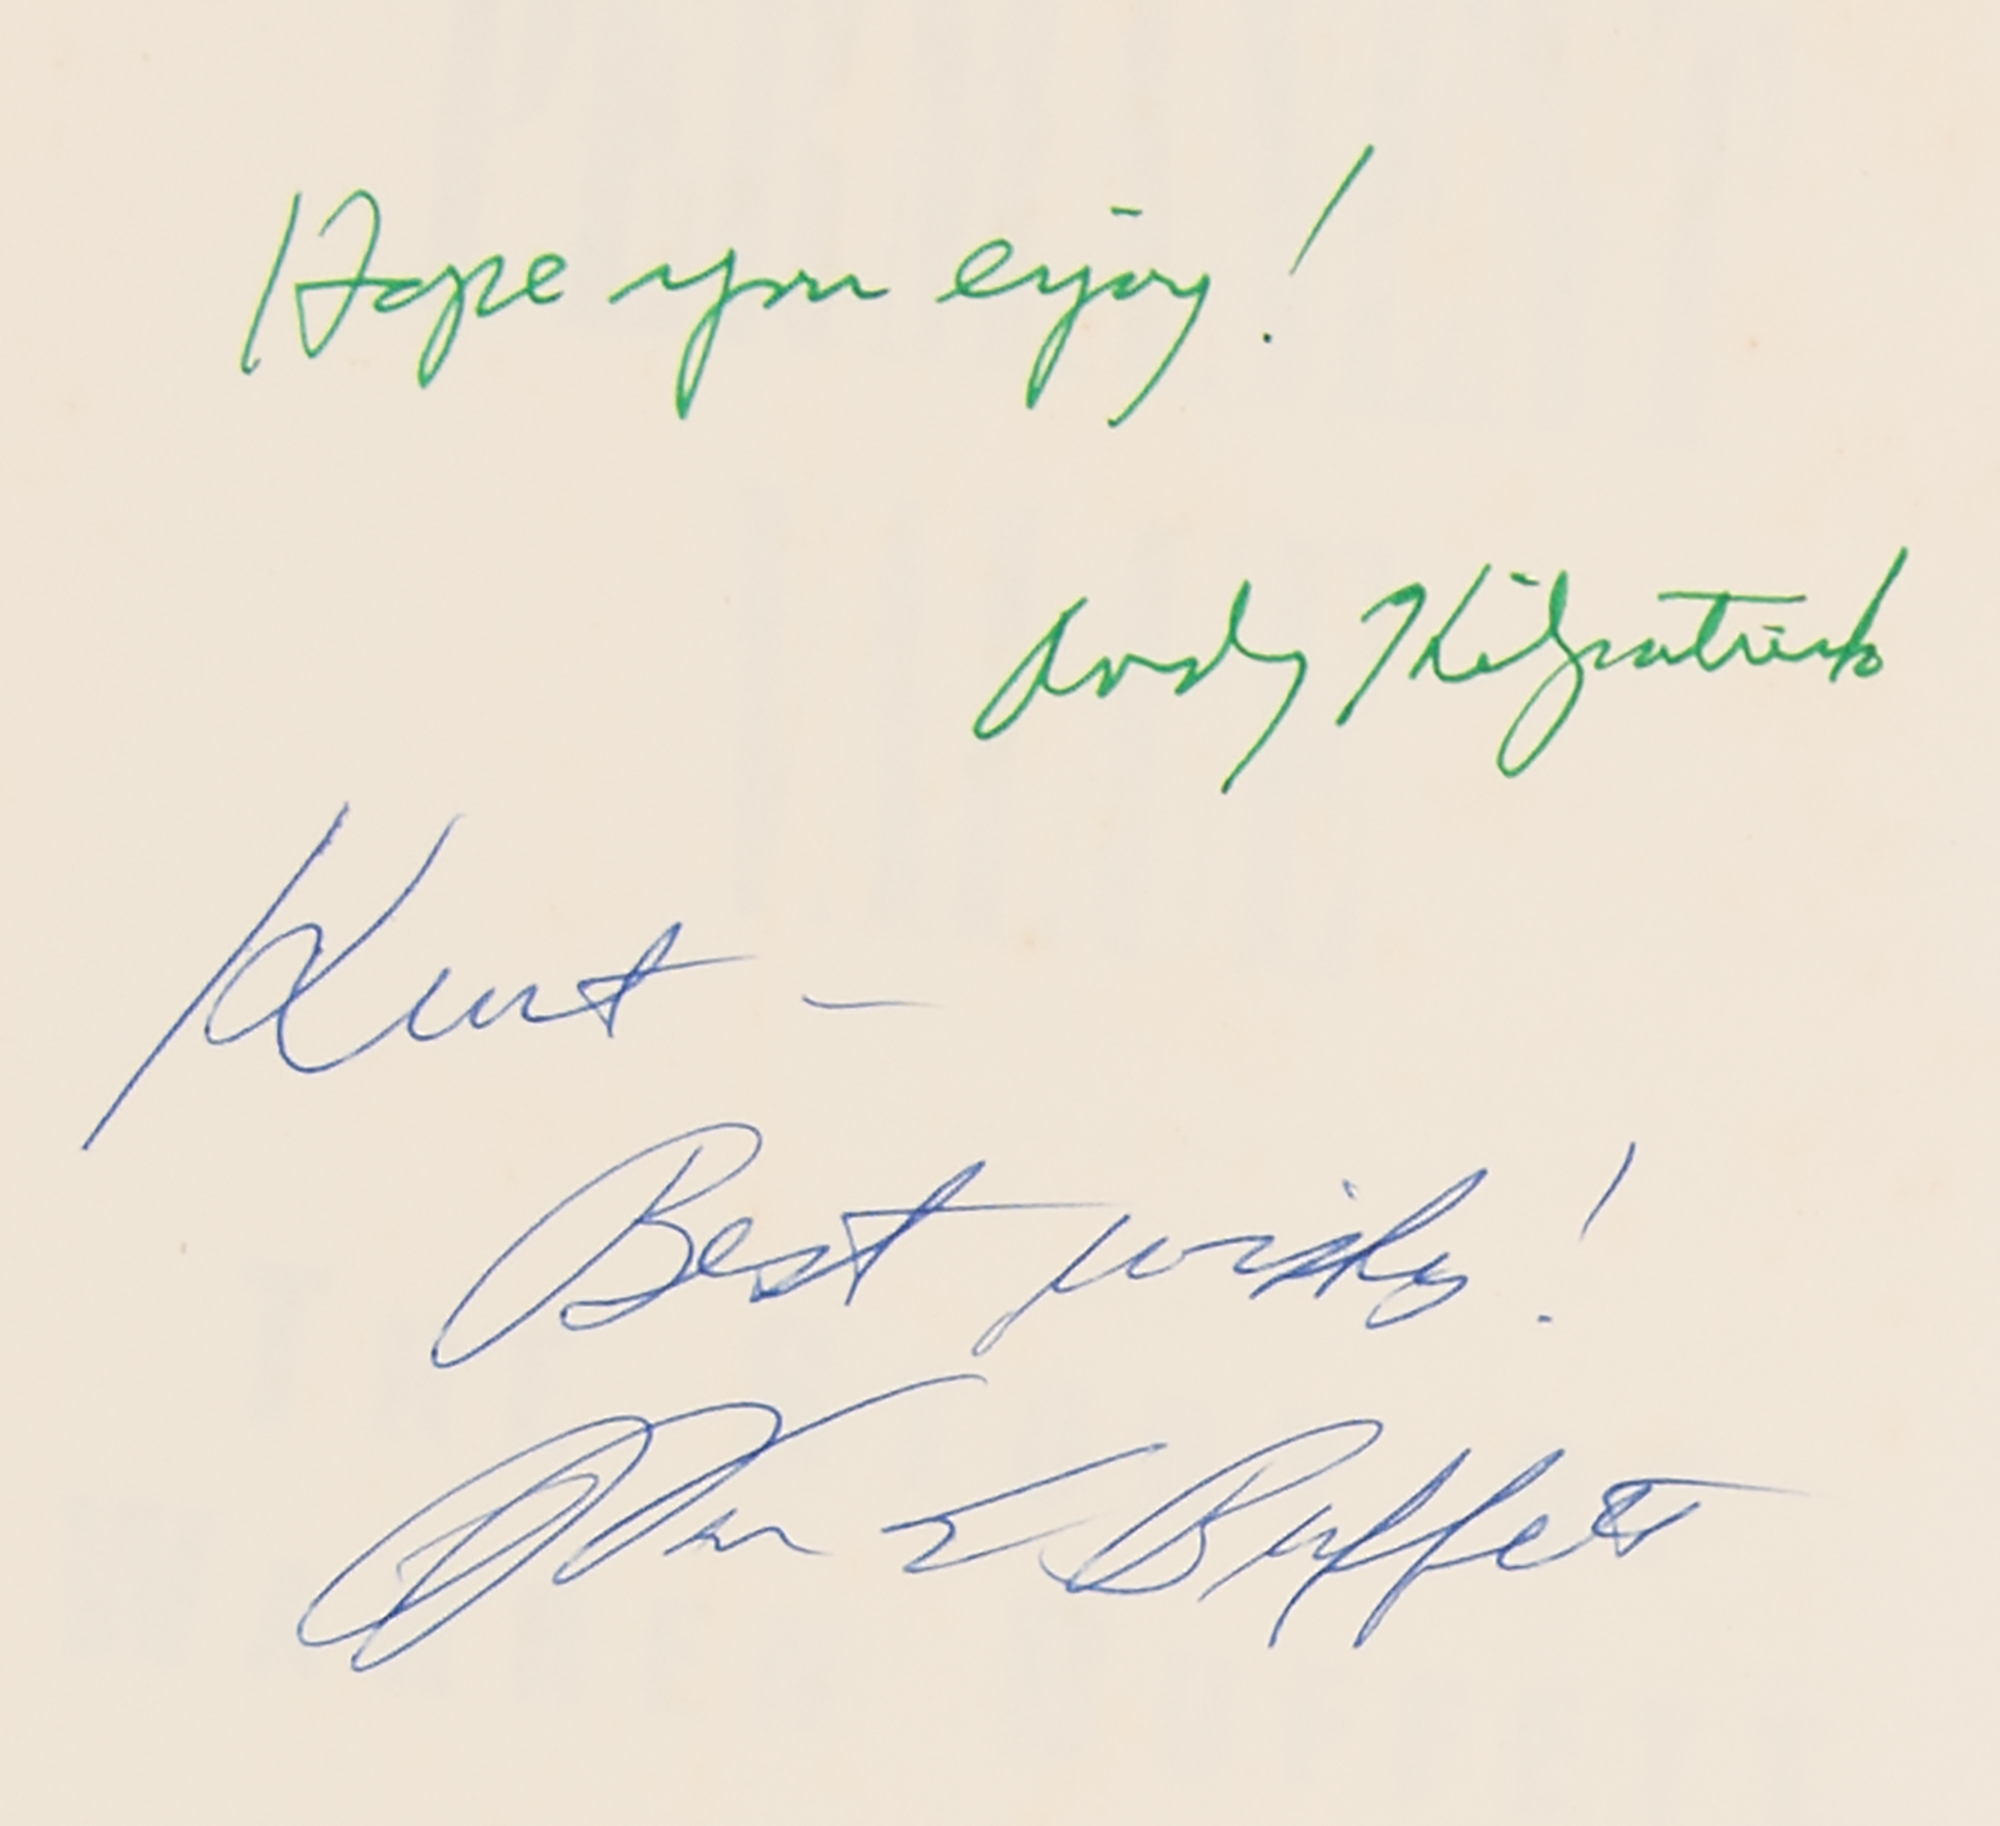 Hope you enjoy!
Andy Kilpatrick
Kurt –
Best wishes!
Warren E Buffett